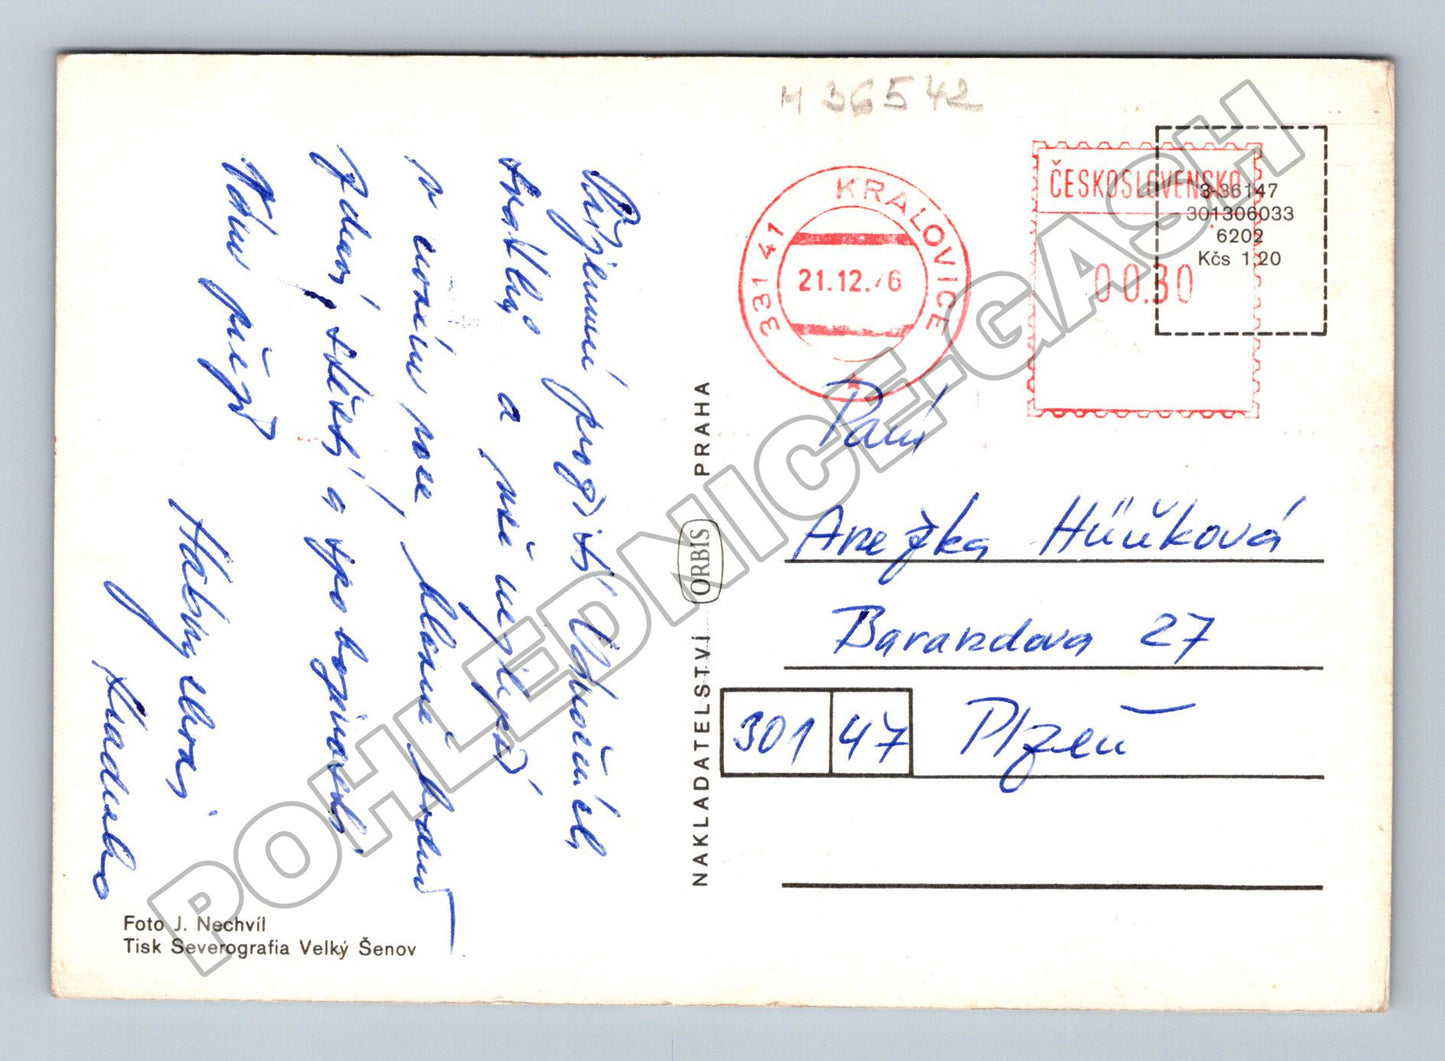 M 36542
KRALOVICE
331 41
21.12.76
ČESKOSLOVENSKO
00.30
3-36147
301306033
6202
Kčs 1,20
Příjemné prožití Vánočních
svátků a vše nejlepší
v novém roce, hlavně hodně
zdraví, štěstí a spokojenosti
Vám přeje
Paní
Anežka Hůňková
Barandova 27
301 47 Plzeň
NAKLADATELSTVÍ ORBIS PRAHA
Foto J. Nechvíl
Tisk Severografia Velký Šenov
POHLEDNICE.GASH